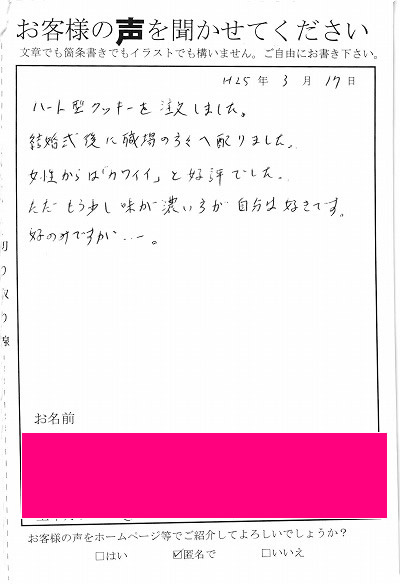 お客様の声を聞かせてください
文章でも箇条書きでもイラストでも構いません。ご自由にお書き下さい。
H25年 3月 17日
ハート型クッキーを注文しました。
結婚式後に職場の方々へ配りました。
女性からは「カワイイ」と好評でした。
ただもう少し味が濃い方が自分は好きです。
好のみですが…。
切り取り線
お名前
お客様の声をホームページ等でご紹介してよろしいでしょうか？
□はい ☑匿名で □いいえ